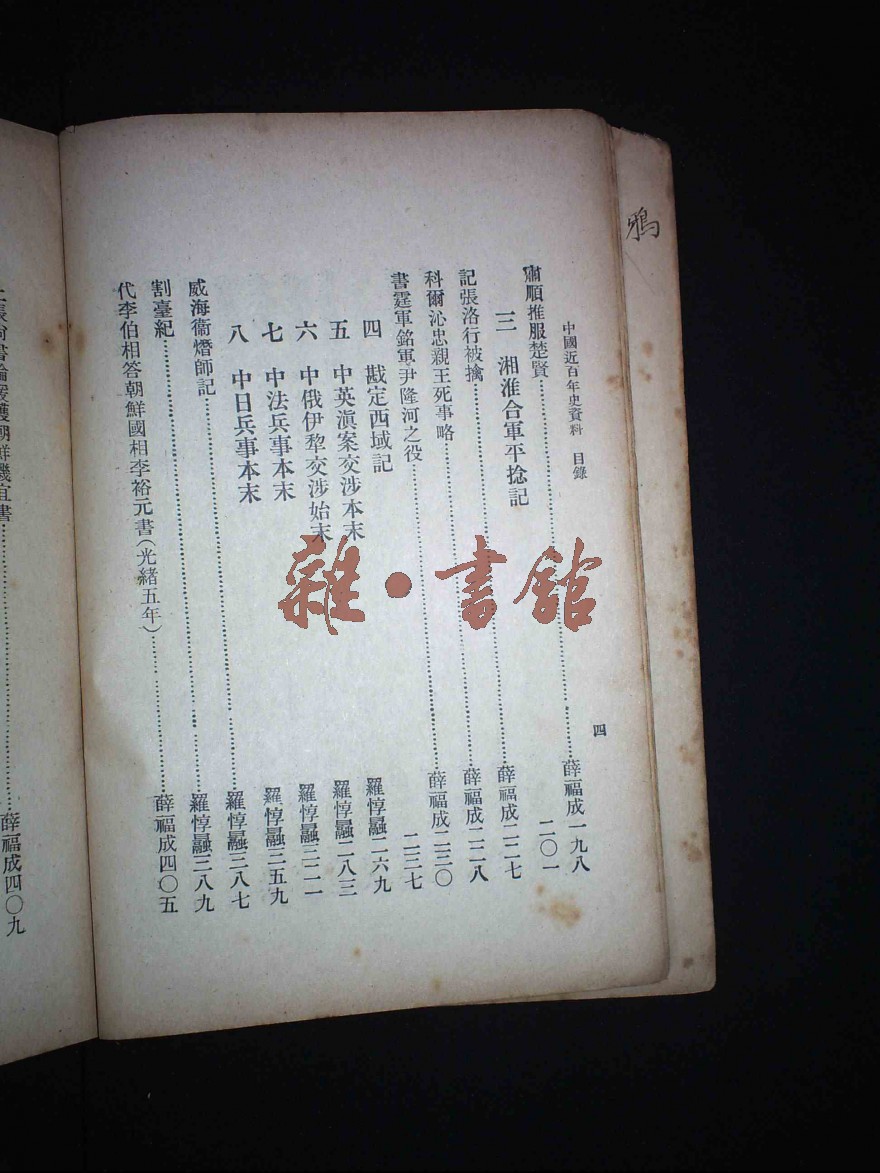 鴉
中國近百年史資料 目錄 四
肅順推服楚賢……薛福成一九八
三 湘淮合軍平捻記 二〇一
記張洛行被擒……薛福成二二七
科爾沁忠親王死事略……薛福成二二八
書霆軍銘軍尹隆河之役……薛福成二三〇
四 戡定西域記 二三七
五 中英滇案交涉本末 羅惇曧二六九
六 中俄伊犂交涉始末 羅惇曧二八三
七 中法兵事本末 羅惇曧三二一
八 中日兵事本末 羅惇曧三五九
威海衞熸師記……羅惇曧三八七
割臺紀……羅惇曧三八九
代李伯相答朝鮮國相李裕元書(光緒五年)……薛福成四〇五
張尚書論援護朝鮮機宜書……薛福成四〇九
雜·書館